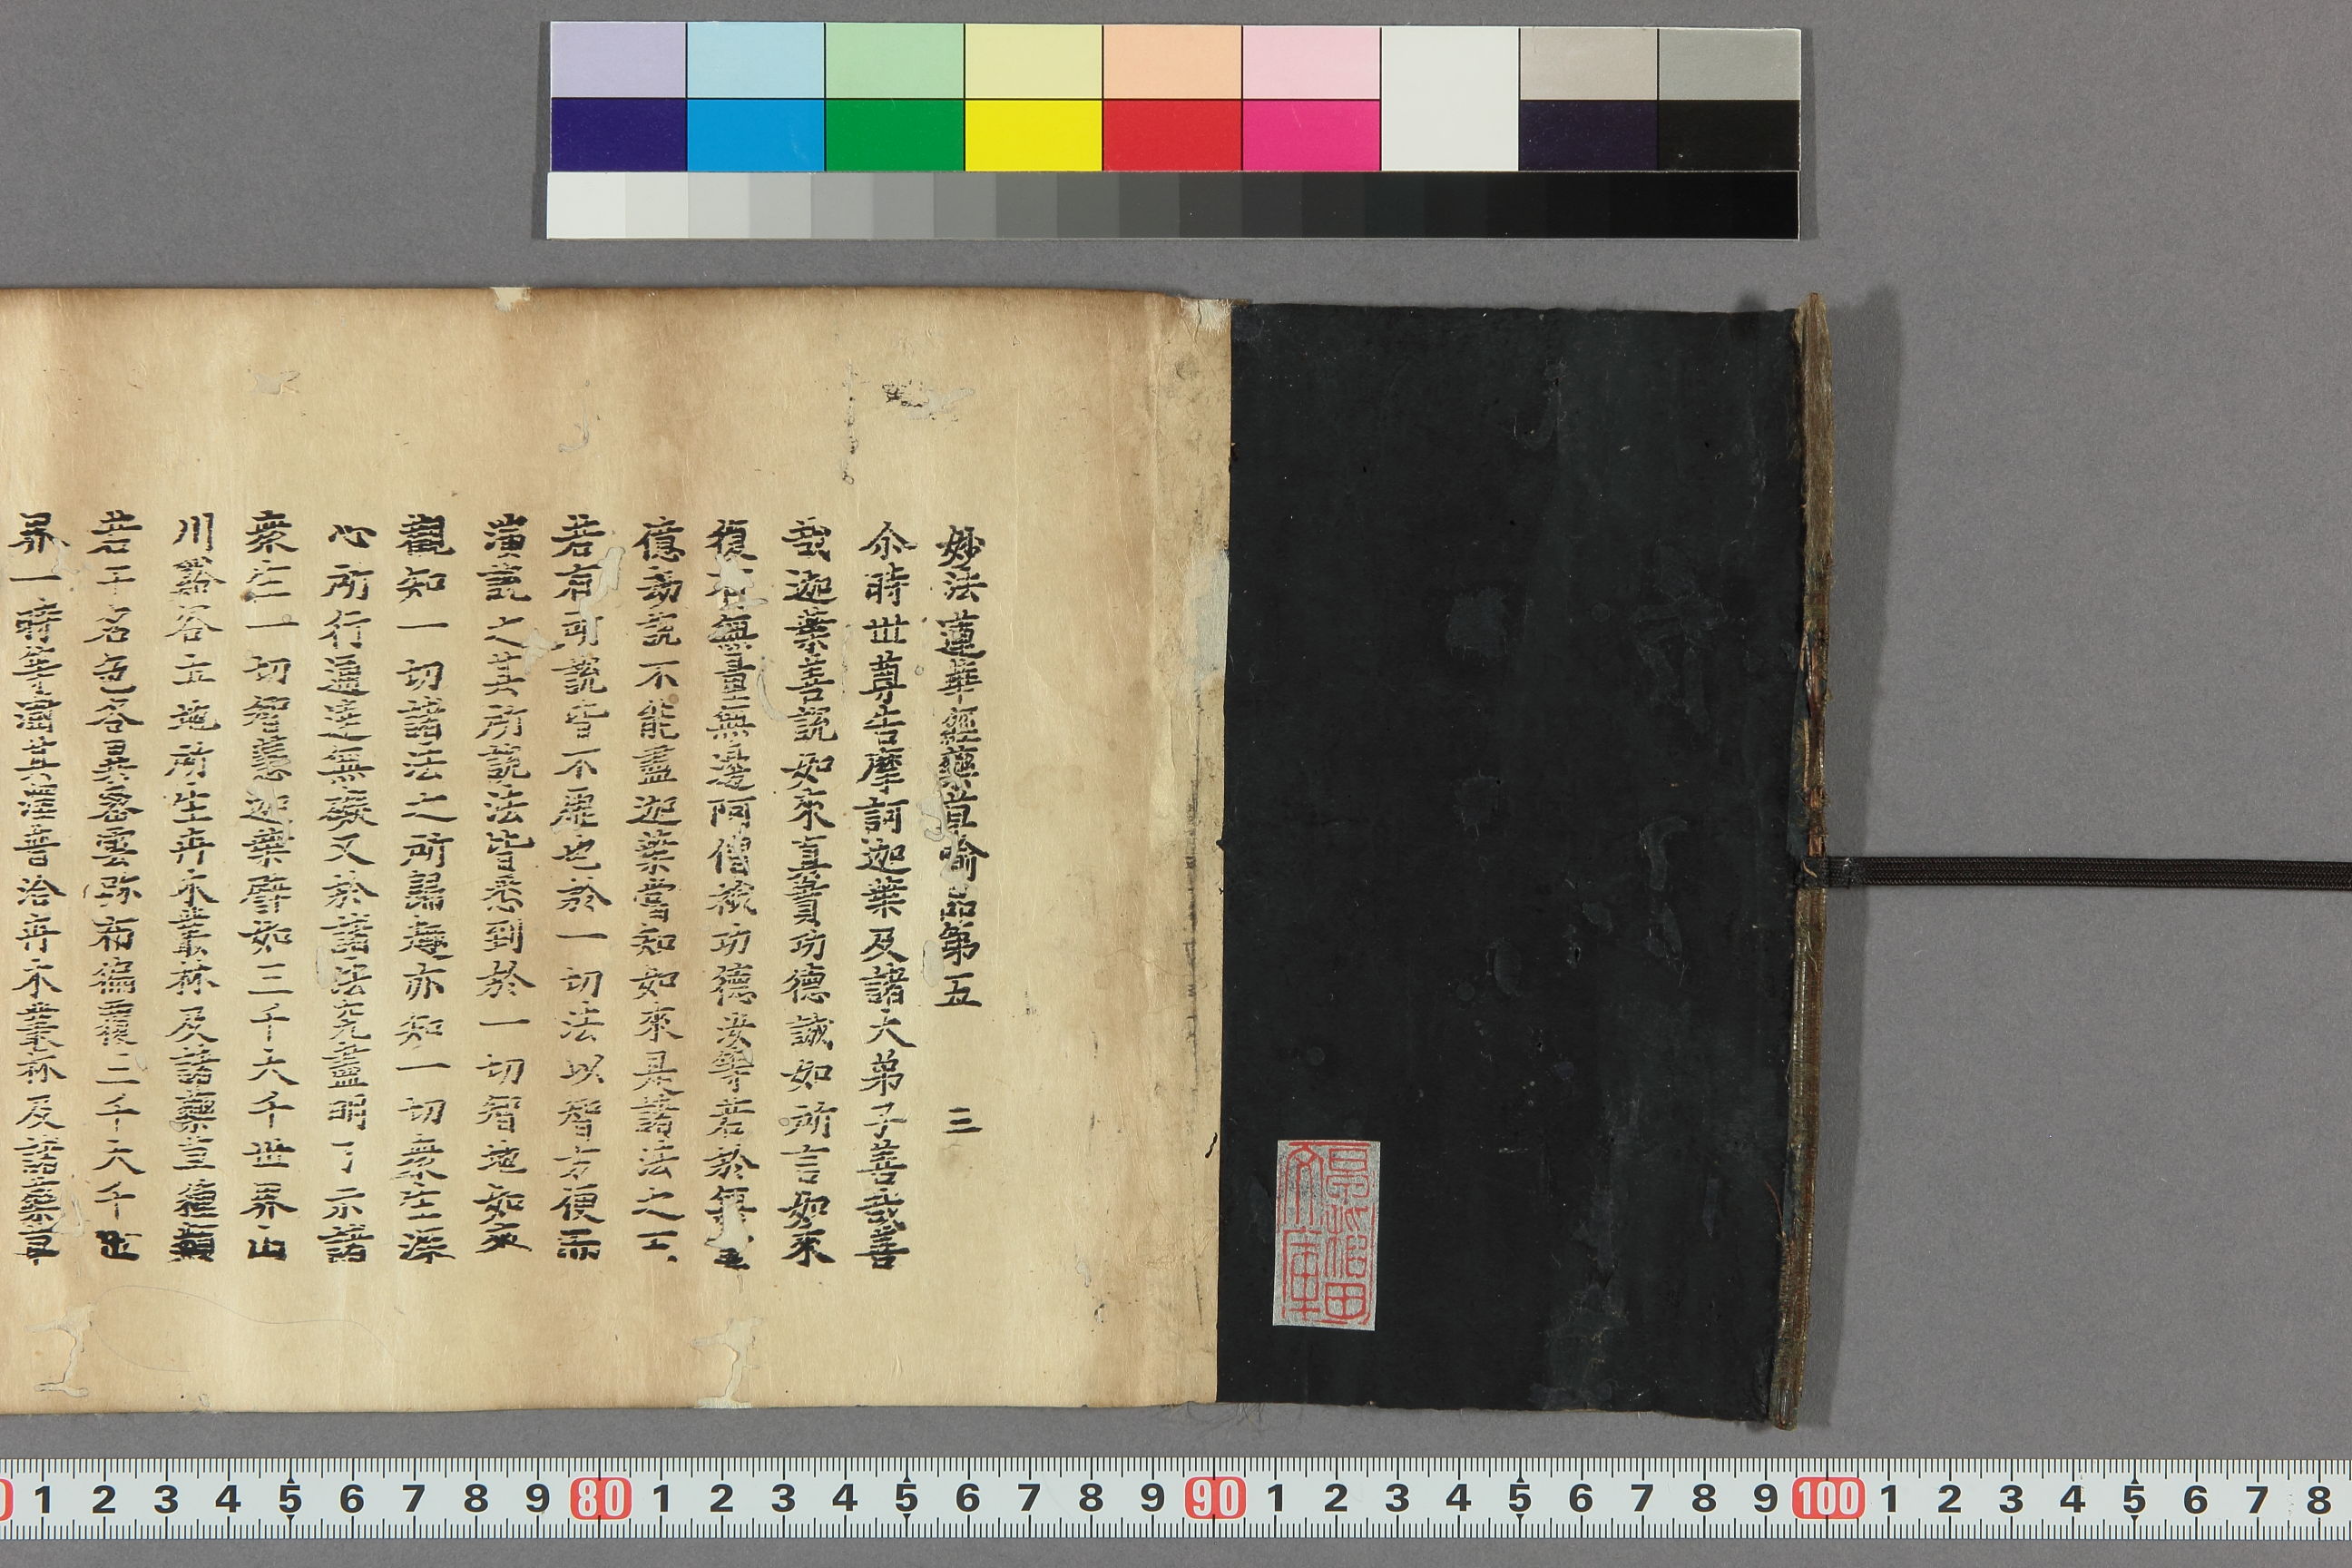 妙法蓮華經藥草喻品第五 三
尒時世尊告摩訶迦葉及諸大弟子善哉善
哉迦葉善說如來真實功德誠如所言如來
復有無量無邊阿僧祇功德汝等若於無量
億劫說不能盡迦葉當知如來是諸法之王
若有所說皆不虛也於一切法以智方便而
演說之其所說法皆悉到於一切智地如來
觀知一切諸法之所歸趣亦知一切衆生深
心所行通達無礙又於諸法究盡明了示諸
衆生一切智慧迦葉譬如三千大千世界山
川谿谷土地所生卉木叢林及諸藥草種類
若干名色各異密雲弥布徧覆三千大千世
界一時等澍其澤普洽卉木叢林及諸藥草
1 2 3 4 5 6 7 8 9 80 1 2 3 4 5 6 7 8 9 90 1 2 3 4 5 6 7 8 9 100 1 2 3 4 5 6 7 8